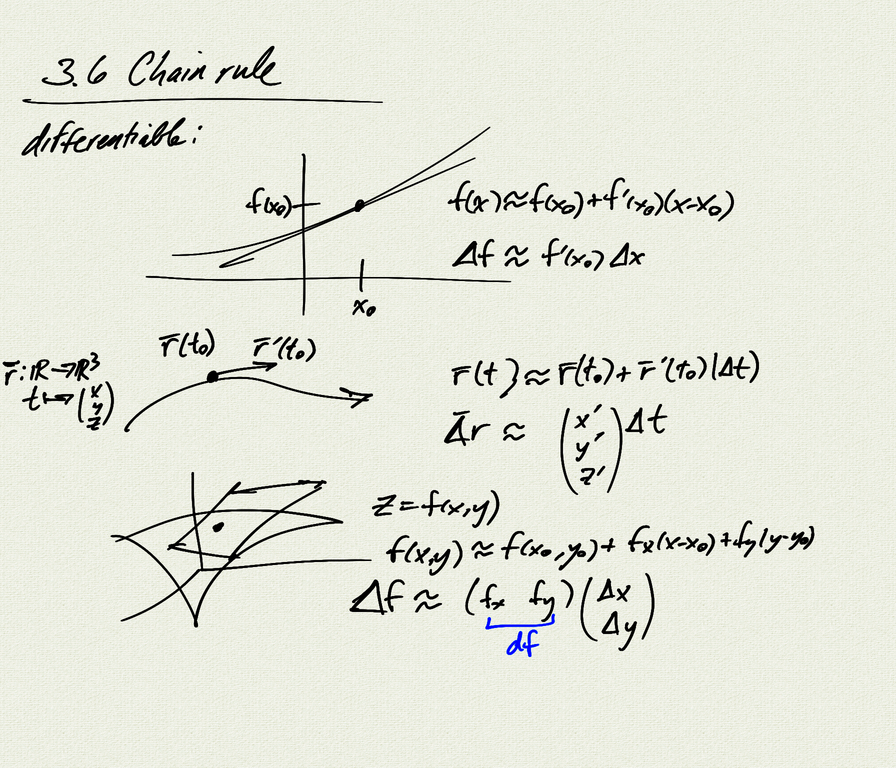 3.6 Chain rule
differentiable:
f(x₀)
f(x)≈f(x₀)+f'(x₀)(x-x₀)
Δf ≈ f'(x₀)Δx
x₀
r̄(t₀) r̄'(t₀)
r̄:ℝ→ℝ³
t↦(x y z)
r̄(t)≈r̄(t₀)+r̄'(t₀)(Δt)
Δ̄r ≈ (x' y' z')Δt
z=f(x,y)
f(x,y)≈f(x₀,y₀)+fx(x-x₀)+fy(y-y₀)
Δf≈(fx fy)(Δx Δy)
df